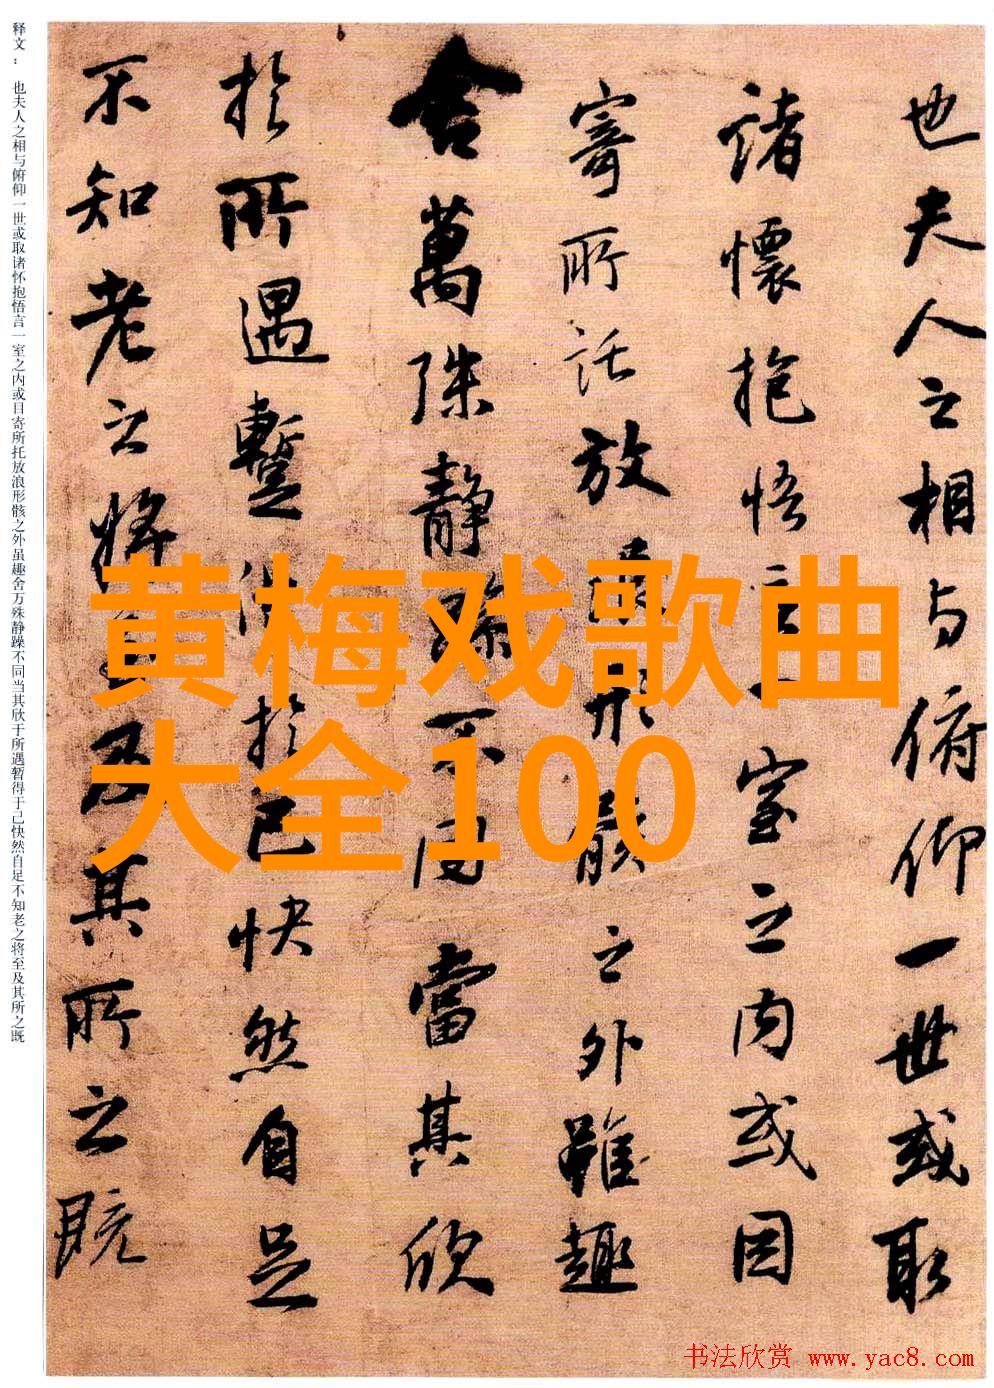 黄梅戏歌曲
大全100
也夫人之相与俯仰一世或取
諸懷抱悟言一室之内或因
寄所託放浪形骸之外雖趣
舍萬殊静躁不同當其欣
於所遇暫得於己快然自足
不知老之將至及其所之既
释文： 也夫人之相与俯仰一世或取诸怀抱悟言一室之内或目寄所托放浪形骸之外虽趣舍万殊静躁不同当其欣于所遇暂得于己快然自足不知老之将至及其所之既
书法欣赏 www.yac8.com